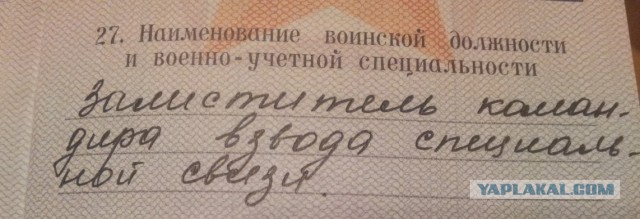 27. Наименование воинской должности
и военно-учетной специальности
Замиститель коман-
дира взвода специаль-
ной связи.
YAPLAKAL.COM